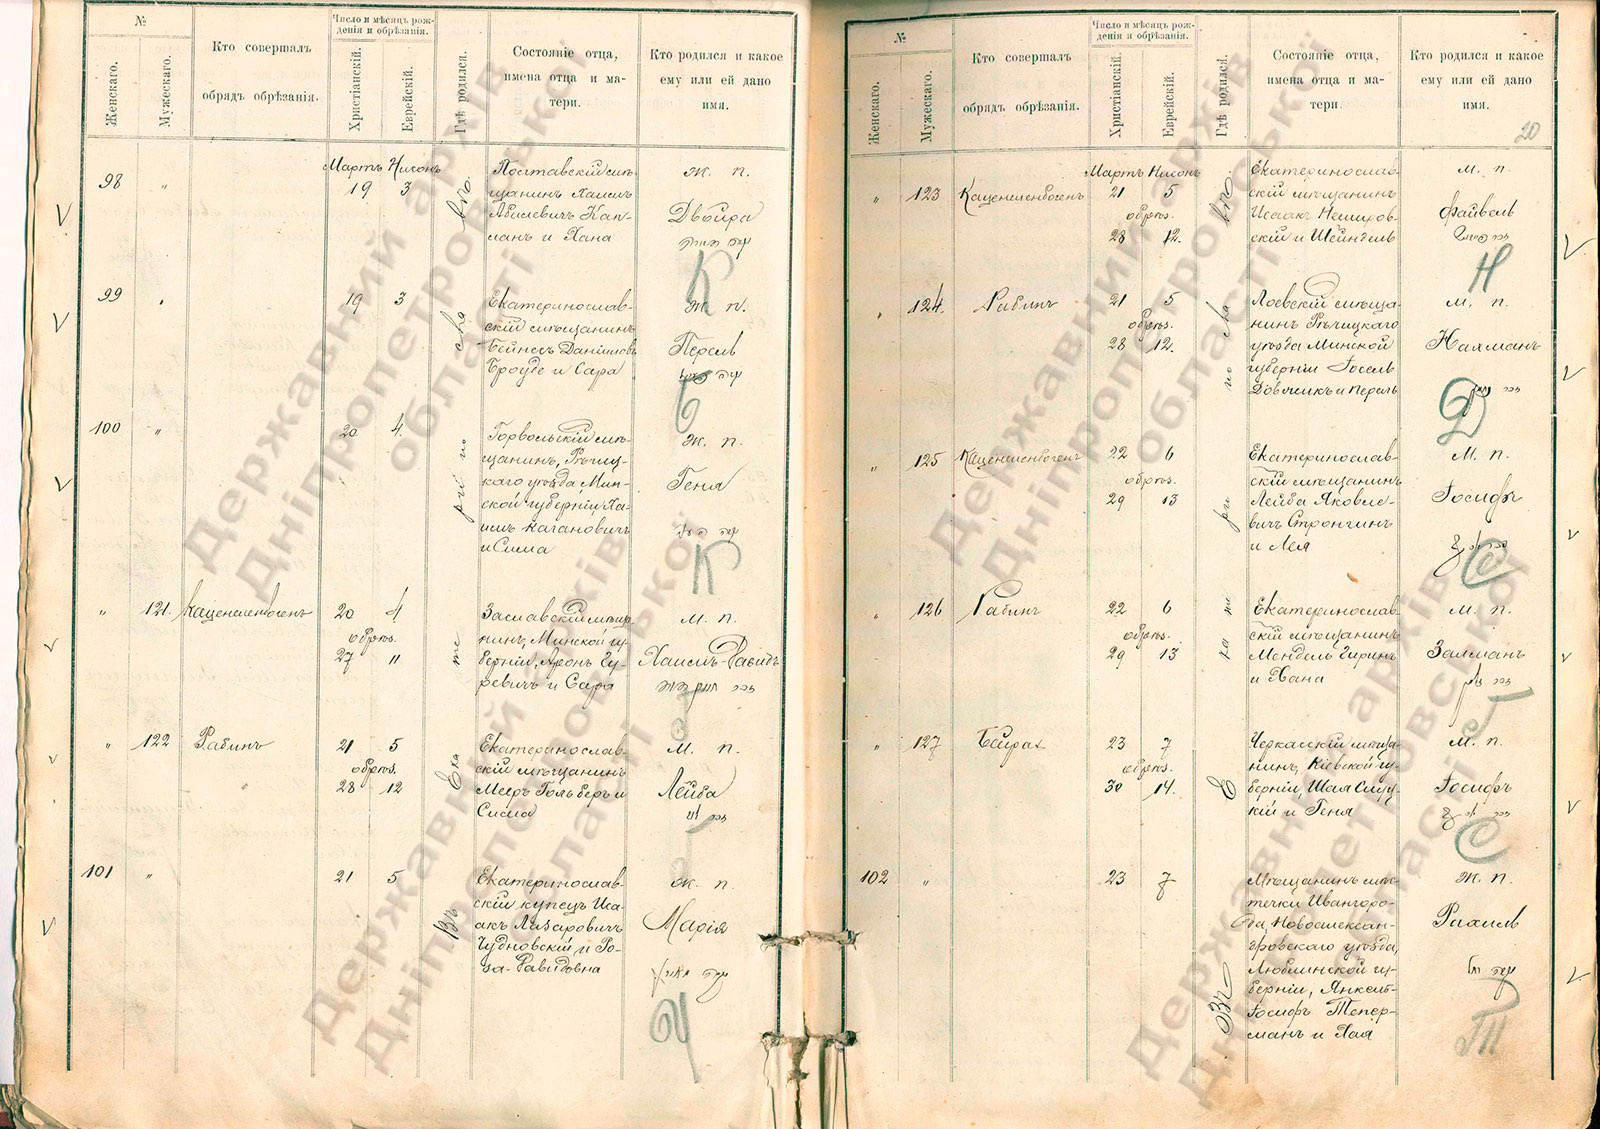 №
Женскаго.
Мужескаго.
Кто совершалъ
обрядъ обрѣзанія.
Число и мѣсяцъ рож-
денія и обрѣзанія.
Христіанскій.
Еврейскій.
Гдѣ родился.
Состояніе отца,
имена отца и ма-
тери.
Кто родился и какое
ему или ей дано
имя.
98
"
Мартъ Нисонъ
19 3
Полтавскій мѣ-
щанинъ Хаимъ
Абилевичъ Кап-
ланъ и Хана
ж. п.
Двойра
К
99
"
19 3
Екатеринослав-
скій мѣщанинъ
Бейнесъ Даніиловъ
Броуде и Сара
ж. п.
Перель
Б
100
"
20 4
Горвольскій мѣ-
щанинъ, Рѣчиц-
каго уѣзда Мин-
ской губерніи Ха-
имъ Кагановичъ
и Сима
ж. п.
Геня
К
"
121.
Каценеленбогенъ
20 4
обрѣз.
27 11
Заславскій мѣща-
нинъ, Минской гу-
берніи, Аронъ Гу-
ревичъ и Сара
м. п.
Хаимъ-Давидъ
Г
"
122
Рабинъ
"
21 5
обрѣз.
28 12
Екатеринослав-
скій мѣщанинъ
Мееръ Гольберъ и
Сима
м. п.
Лейба
Г
101
"
21 5
Екатеринослав-
скій купецъ Иса-
акъ Лазаровичъ
Чудновскій и Ро-
за Давидовна
ж. п.
Марія
Ч
Въ Ека те ри но сла вѣ.
№
Женскаго.
Мужескаго.
Кто совершалъ
обрядъ обрѣзанія.
Число и мѣсяцъ рож-
денія и обрѣзанія.
Христіанскій.
Еврейскій.
Гдѣ родился.
Состояніе отца,
имена отца и ма-
тери.
Кто родился и какое
ему или ей дано
имя.
20
"
123
Каценеленбогенъ
Мартъ Нисонъ
21 5
обрѣз.
28 12.
Екатеринослав-
скій мѣщанинъ
Исаакъ Немиров-
скій и Шейндель
м. п.
Файвель
Н
"
124.
Рабинъ
21 5
обрѣз.
28 12.
Лоевскій мѣща-
нинъ Рѣчицкаго
уѣзда Минской
губерніи Іосель
Довжикъ и Перль
м. п.
Нахманъ
Д
"
125
Каценеленбогенъ
22 6
обрѣз.
29 13
Екатеринослав-
скій мѣщанинъ
Лейба Яковле-
вичъ Стронгинъ
и Лея
м. п.
Іосифъ
С
"
126
Рабинъ
22 6
обрѣз.
29 13
Екатеринослав-
скій мѣщанинъ
Мендель Гиринъ
и Хана
м. п.
Залманъ
Г
"
127
23 7
обрѣз.
30 14.
Черкасскій мѣща-
нинъ, Кіевской гу-
берніи, Шая
и Геня
м. п.
Іосифъ
С
102
"
23 7
Мѣщанинъ мѣс-
течки Ивангоро-
да, Новоалексан-
дровскаго уѣзда,
Люблинской гу-
берніи, Янкель-
Іосифъ Тепер-
манъ и Хая
ж. п.
Рахиль
Т
Державний архів
Дніпропетровської
області